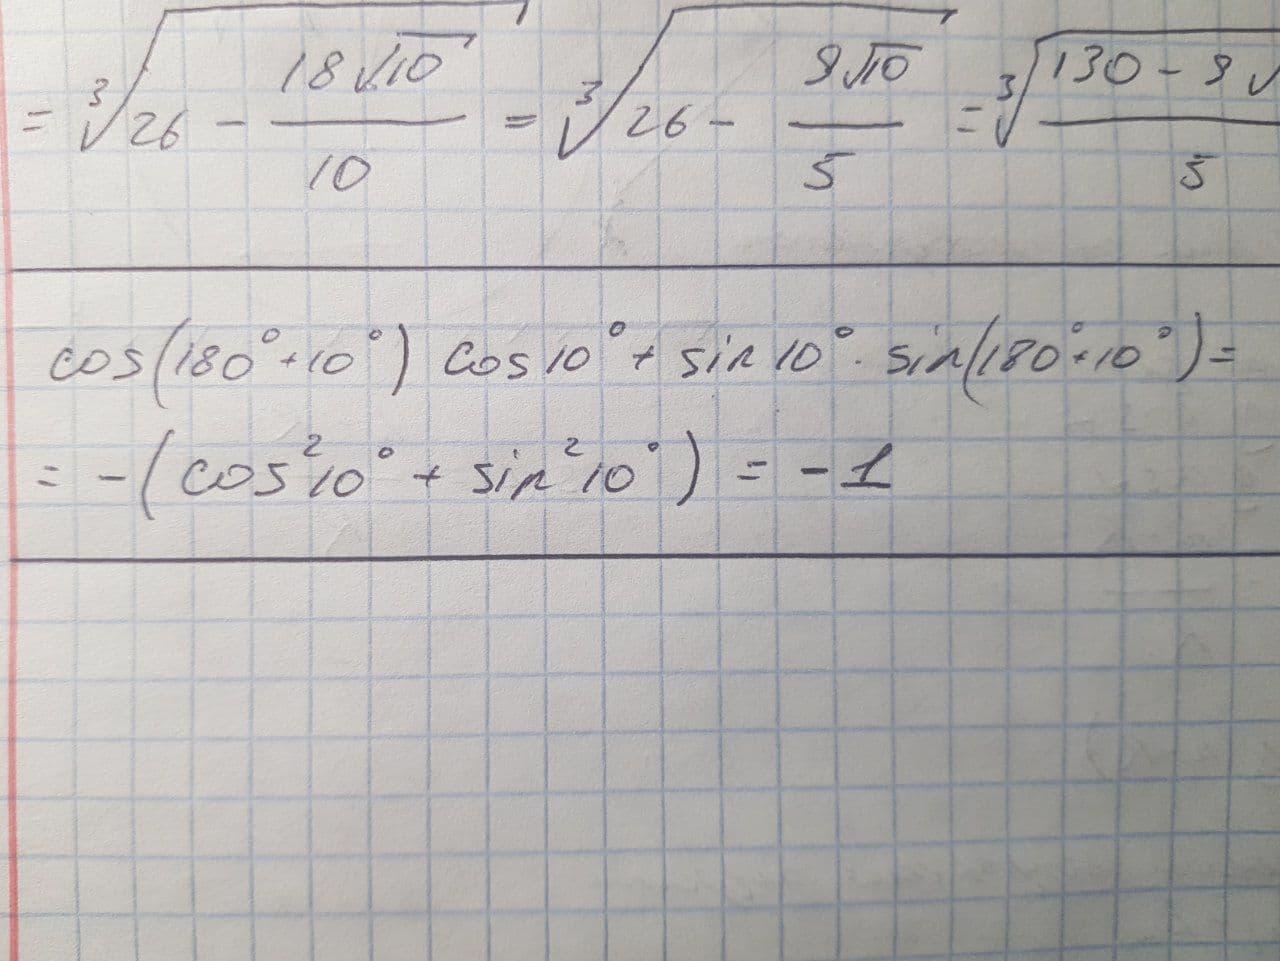 = ∛(26 - 18√10/10) = ∛(26 - 9√10/5) = ∛((130 - 9√)/5)
cos(180°+10°) cos10° + sin10° · sin(180°+10°) =
= -(cos²10° + sin²10°) = -1